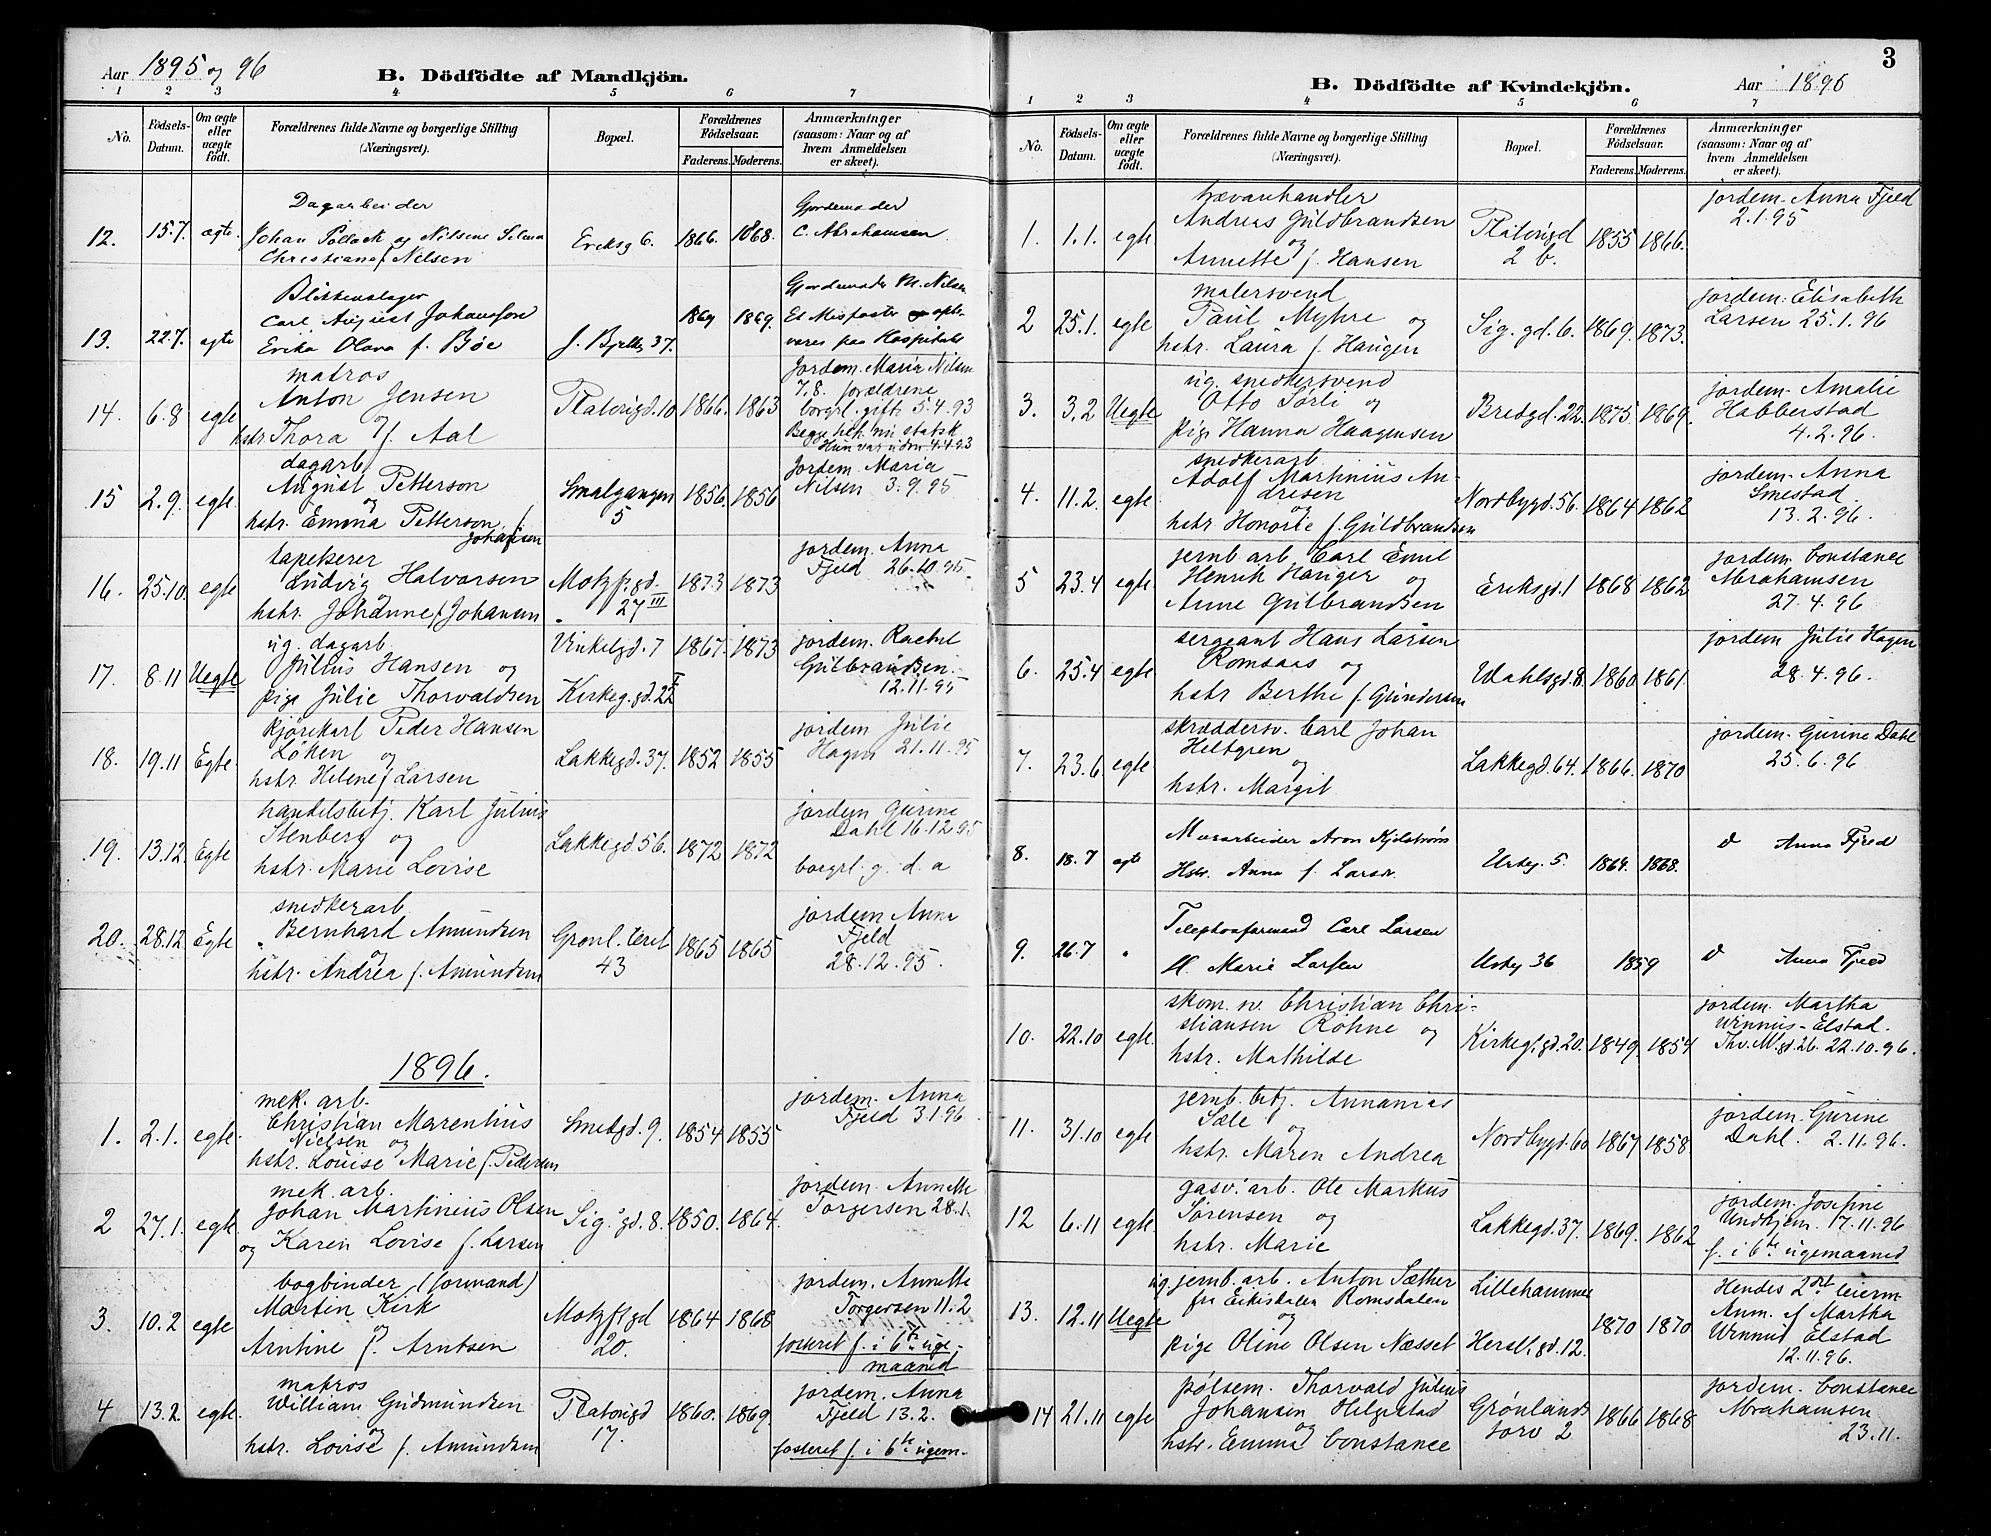 Aar 1895 og 96
B. Dödfödte af Mandkjön.
1 2 3 4 5 6 7
No. Födsels-Datum. Om ægte eller uægte födt. Forældrenes fulde Navne og borgerlige Stilling (Næringsvei). Bopæl. Forældrenes Födselsaar. Faderens. Moderens. Anmærkninger (saasom: Naar og af hvem Anmeldelsen er skeet).
Dagarbeider Gjordemoder
12. 15.7. ægte. Johan Pollack og Nilsine Eriksg 6. 1866. 1868. C. Abrahamsen
Christiane f Nilsen
Blikkenslager Gjordemoder M. Nilsen
13. 22.7. ægte Carl August Johansson 1869. Et Misfoster
Erika Olava f. Bøe J. Bjelkesg 37. paa Hospitalet
matros Jordem. Maria Nilsen
14. 6.8 egte Anton Jensen Platousgd. 10 1866. 1863 7.8. forældrene
hstr Thora f. Aal borgrl. gift 5.4.93
Begge statsk.
4.4.93
dagarb. Jordem. Maria
15 2.9. egte. August Petterson Smalgangen 1856. 1856 Nilsen 3.9.95
og 5
hstr. Emma Petterson, f. Johansen
tapetserer jordem. Anna
16. 25.10. egte Ludvig Halvorsen Motzf. gd. 1873 1873 Fjeld 26.10.95.
hstr. Johanne f Johansen 27 III
ug. dagarb. Vinkelgd. 7 1867. 1873 jordem. Rachel
17. 8.11 Uegte Julius Hansen og Gulbrandsen.
pige Julie Thorvaldsen Kirkeg. gd. 22 12.11.95
kjørekarl Peder Hansen jordem Julie
18. 19.11 Egte. Løken og Lakkegd. 37. 1852 1855 Hagen 21.11.95
hstr. Helene f Larsen
handelsbetj. Karl Julius jordem Gurine
19. 13.12. Egte Stenberg og Lakkegd. 56. 1872 1872 Dahl 16.12.95
hstr. Marie Lovise borgrl. g. d. a
snedkerarb. jordem Anna
20. 28.12 Egte Bernhard Amundsen Grønl. toret 1865 1865 Fjeld
og 43 28.12.95.
hstr. Andrea f. Amundsen
1896.
mek. arb. jordem. Anna
1. 2.1. egte. Christian Marentius Smedgd. 9. 1854 1855 Fjeld 3.1.96
Nielsen og
hstr. Louise Marie f. Pedersen
mek. arb. jordem. Annette
2 27.1. egte Johan Martinius Olsen Sig. gd. 8. 1850. 1864. Torgersen 28.1.
og Karen Lovise f. Larsen
bogbinder (formand) jordem. Annette
3. 10.2 egte Martin Kirk Motzf. gd 1864 1868 Torgersen 11.2
og 20. fosteret f. i 6te uge-
Arntine f. Arntsen maaned
matros jordem. Anna
4 13.2. egte William Gudmundsen Platousgd 1860. 1869 Fjeld 13.2.
og 17. fosteret f. i 6te ugem.
hstr. Lovise f. Amundsen
3
B. Dödfödte af Kvindekjön. Aar 1896
1 2 3 4 5 6 7
No. Födsels-Datum. Om ægte eller uægte födt. Forældrenes fulde Navne og borgerlige Stilling (Næringsvei). Bopæl. Forældrenes Födselsaar. Faderens. Moderens. Anmærkninger (saasom: Naar og af hvem Anmeldelsen er skeet).
trævarehandler jordem. Anna Fjeld
1. 1.1. egte Andreas Guldbrandsen Platousgd 1855 1866. 2.1.95
og 2 b.
Annette f. Hansen
malersvend jordem. Elisabeth
2 25.1. egte Paul Myhre og Sig. gd. 6. 1869. 1873. Larsen 25.1.96
hstr. Laura f. Haugen
ug. snedkersvend jordem. Amalie
3. 3.2 Uegte Otto Sørli og Bredgd. 22. 1875. 1869. Habberstad
pige Hanna Haagensen 4.2.96.
snedkerarb jordem. Anna
4. 11.2. egte. Adolf Martinius An- Nordbygd. 56. 1864 1862 Smestad.
dresen og 13.2.96.
hstr Honorie f. Guldbrandsen
jernb. arb. Carl Emil jordem. Constance
5 23.4 egte Henrik Hauger og Eriksgd. 1 1868 1862 Abrahamsen
Anne Gulbrandsen 27.4.96
sergeant Hans Larsen jordem Julie Hagen
6. 25.4 egte Romsaas og Udahlsgd. 8. 1860. 1861. 28.4.96.
hstr Berthe f. Gundersen
skræddersv. Carl Johan jordem. Gurine Dahl
7. 23.6 egte Heltgren Lakkegd. 64. 1866. 1870 25.6.96
og
hstr. Margit
Murarbeider Aron
8. 18.7 ægte Hstr. Anna f. Larsen Urteg. 5. 1864. 1868. d Anna Fjeld
Telephonformand Carl Larsen
9. 26.7 " H. Marie Larsen Urteg 36 1859 d Anna Fjeld
skom. sv. Christian Chri- jordem. Martha
10. 22.10 egte. stiansen Røhne og Kirkeg. gd. 20. 1849. 1854 Winnus-Elstad.
hstr. Mathilde Thv. M. gd. 26. 22.10.96.
jernb. betj. Annanias jordem. Gurine
11. 31.10 egte Sæle og Nordbygd. 60 1867 1858. Dahl. 2.11.96.
hstr. Maren Andrea
gasv. arb. Ole Markus jordem. Josefine
12 6.11 egte. Sørensen og Lakkegd. 37. 1869. 1862 Undhjem. 17.11.96
hstr. Marie f. i 6te ugemaaned
ug. jernb. arb. Anton Sæther Lillehammer Hendes 2det leierm
13. 12.11 Uegte fra Eikisdalen Romsdalen 1870 1870 Anm. af Martha
og Winnus Elstad
pige Oline Olsen Næsset Hersl. gd. 12. 12.11.96.
pølsem. Thorvald Julius jordem. Constance
14 21.11 egte Johansen Helgestad Grønlands 1866 1868 Abrahamsen
og torv 2 23.11.
hstr. Emma Constance